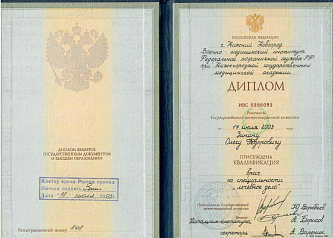 ДИПЛОМ ЯВЛЯЕТСЯ
ГОСУДАРСТВЕННЫМ ДОКУМЕНТОМ
О ВЫСШЕМ ОБРАЗОВАНИИ
Клятву врача России принял
Личная подпись
Дата
Регистрационный номер
РОССИЙСКАЯ ФЕДЕРАЦИЯ
г. Нижний Новгород
Военно-медицинский институт
Федеральной пограничной службы РФ
при Нижегородской государственной
медицинской академии
ДИПЛОМ
ИВС 0386093
Решением
Государственной аттестационной комиссии
от 14 июня 2003
Олегу
ПРИСУЖДЕНА
КВАЛИФИКАЦИЯ
врач
по специальности
"лечебное дело"
Председатель Государственной
аттестационной комиссии
Начальник института
секретарь